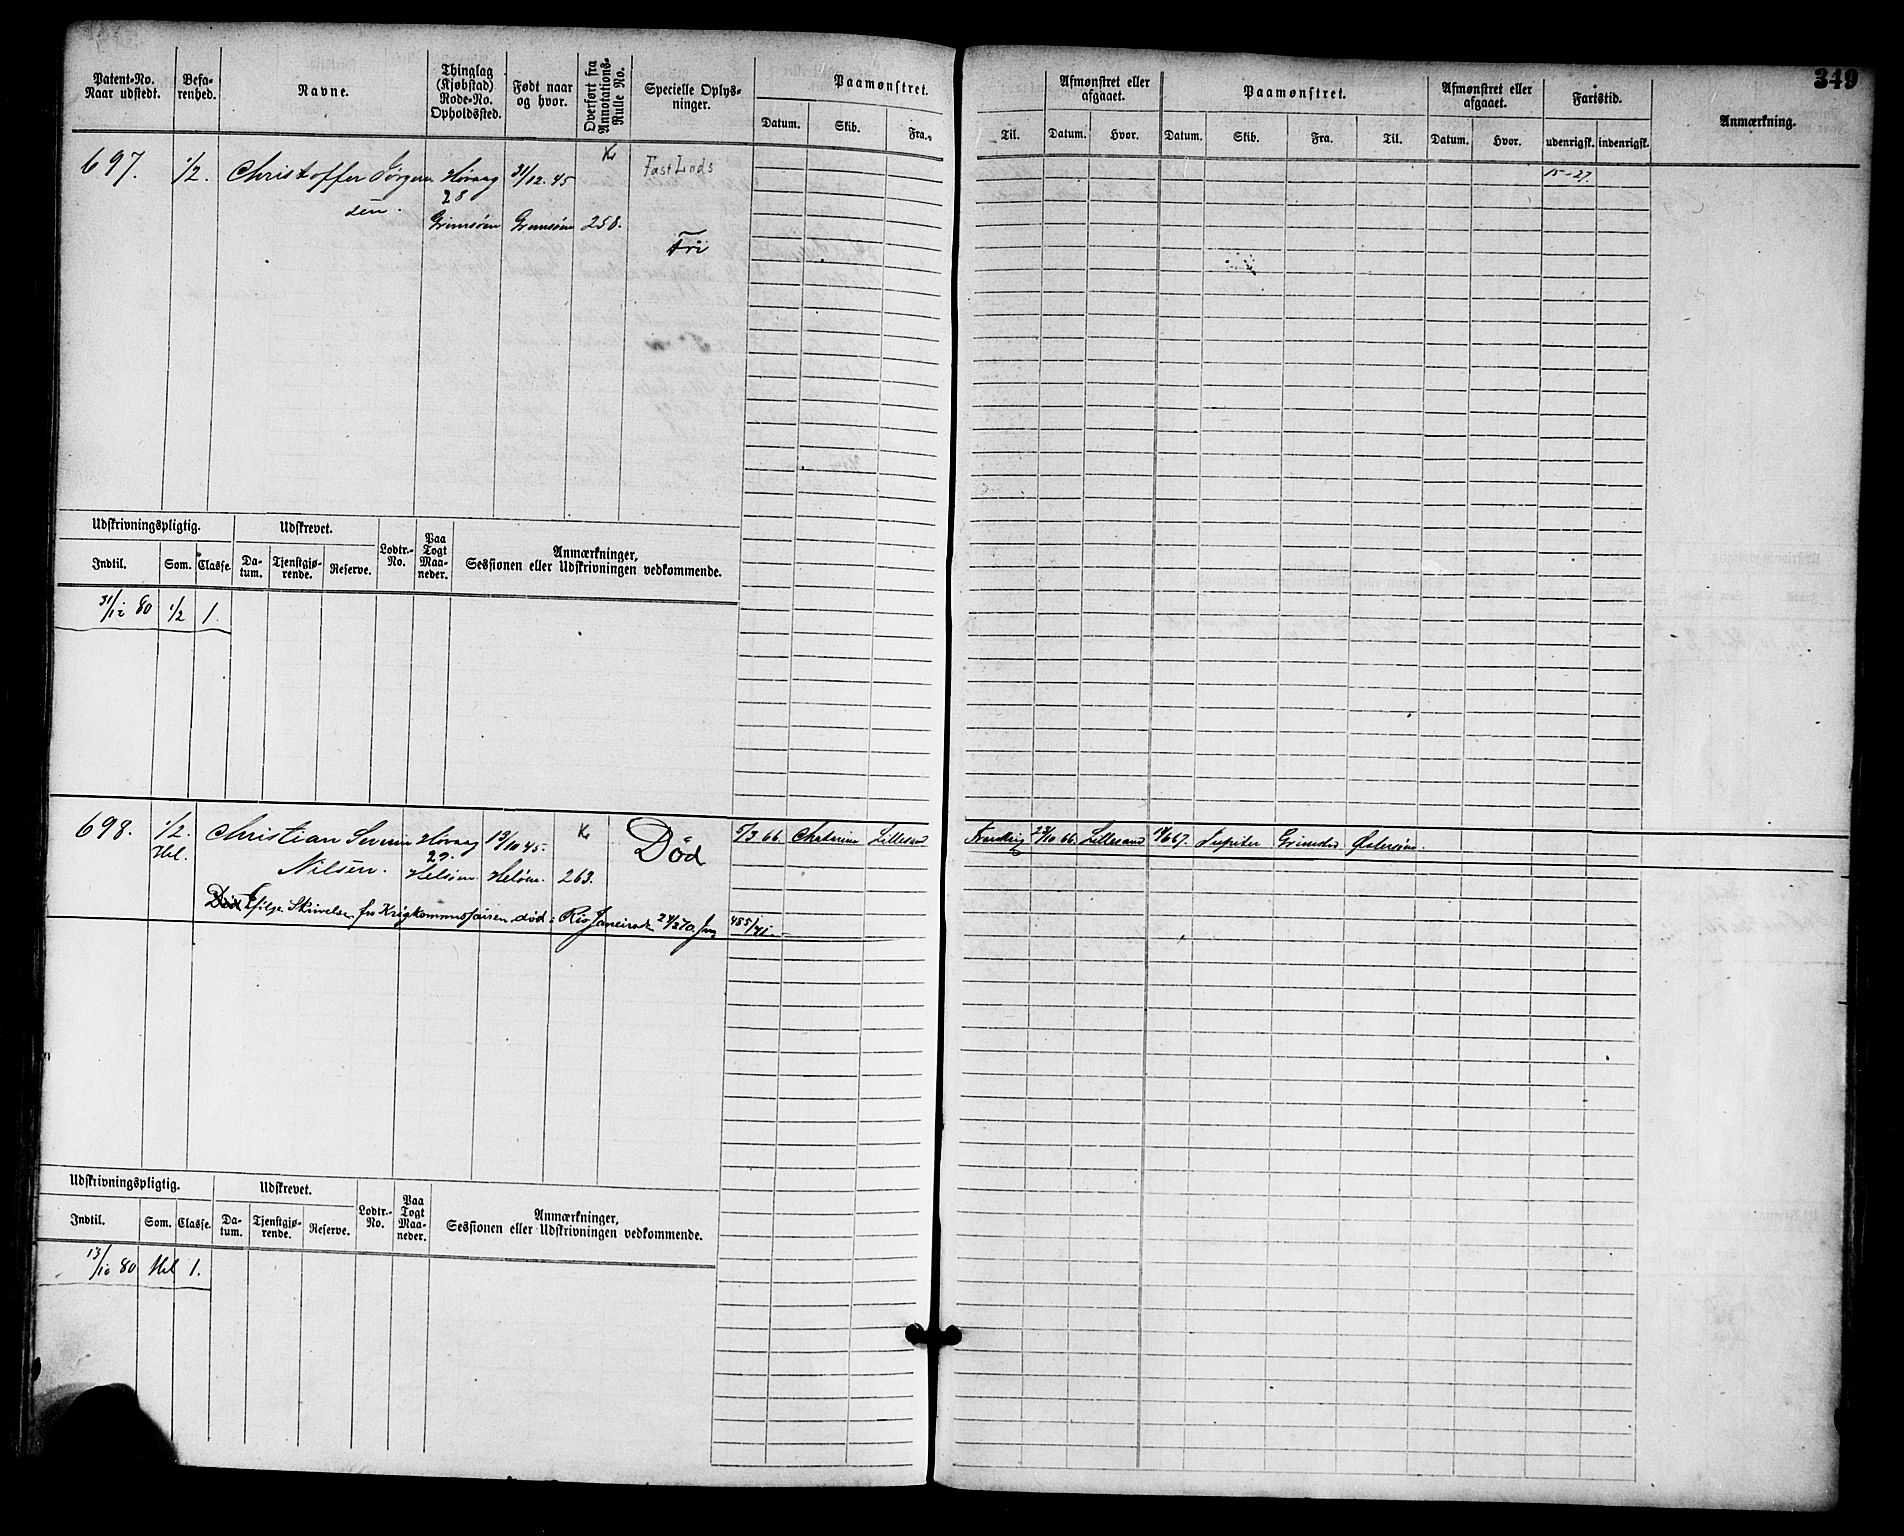 349
Patent-No. Naar udstedt.
Befarenhed.
Navne.
Thinglag (Kjøbstad) Rode-No. Opholdssted.
Født naar og hvor.
Overført fra Annotations-Rulle No.
Specielle Oplysninger.
Paamønstret.
Datum. Skib. Fra. Til.
Afmønstret eller afgaaet.
Datum. Hvor.
Paamønstret.
Datum. Skib. Fra. Til.
Afmønstret eller afgaaet.
Datum. Hvor.
Fartstid.
udenrigsk. indenrigsk.
Anmærkning.
697. 1/2. Christoffer Jörgen Høvaag 31/12.45 Kr Fast Lods 15-27.
sen. 28
Grimsöen Grimsöen 258.
Fri
Udskrivningspligtig. Udskrevet. Lodtr.-No. Paa Togt Maaneder. Anmærkninger, Sessionen eller Udskrivningen vedkommende.
Indtil. Som. Classe. Datum. Tjenstgjørende. Reserve.
31/12 80 1/2 1.
698. 1/2. Christian Severin Høvaag 13/10 45. Kr Död 5/3 66. Chatarina Lillesand 23/10 66. Lillesand Jupiter Grimstad Østersöen.
Hel. Nilsen. 29. Helöen. Helöen. 263.
Skrivelse fra Krigskommissairen död i Rio Janeiro 485/71.
Udskrivningspligtig. Udskrevet. Lodtr.-No. Paa Togt Maaneder. Anmærkninger, Sessionen eller Udskrivningen vedkommende.
Indtil. Som. Classe. Datum. Tjenstgjørende. Reserve.
13/10 80 Hel 1.